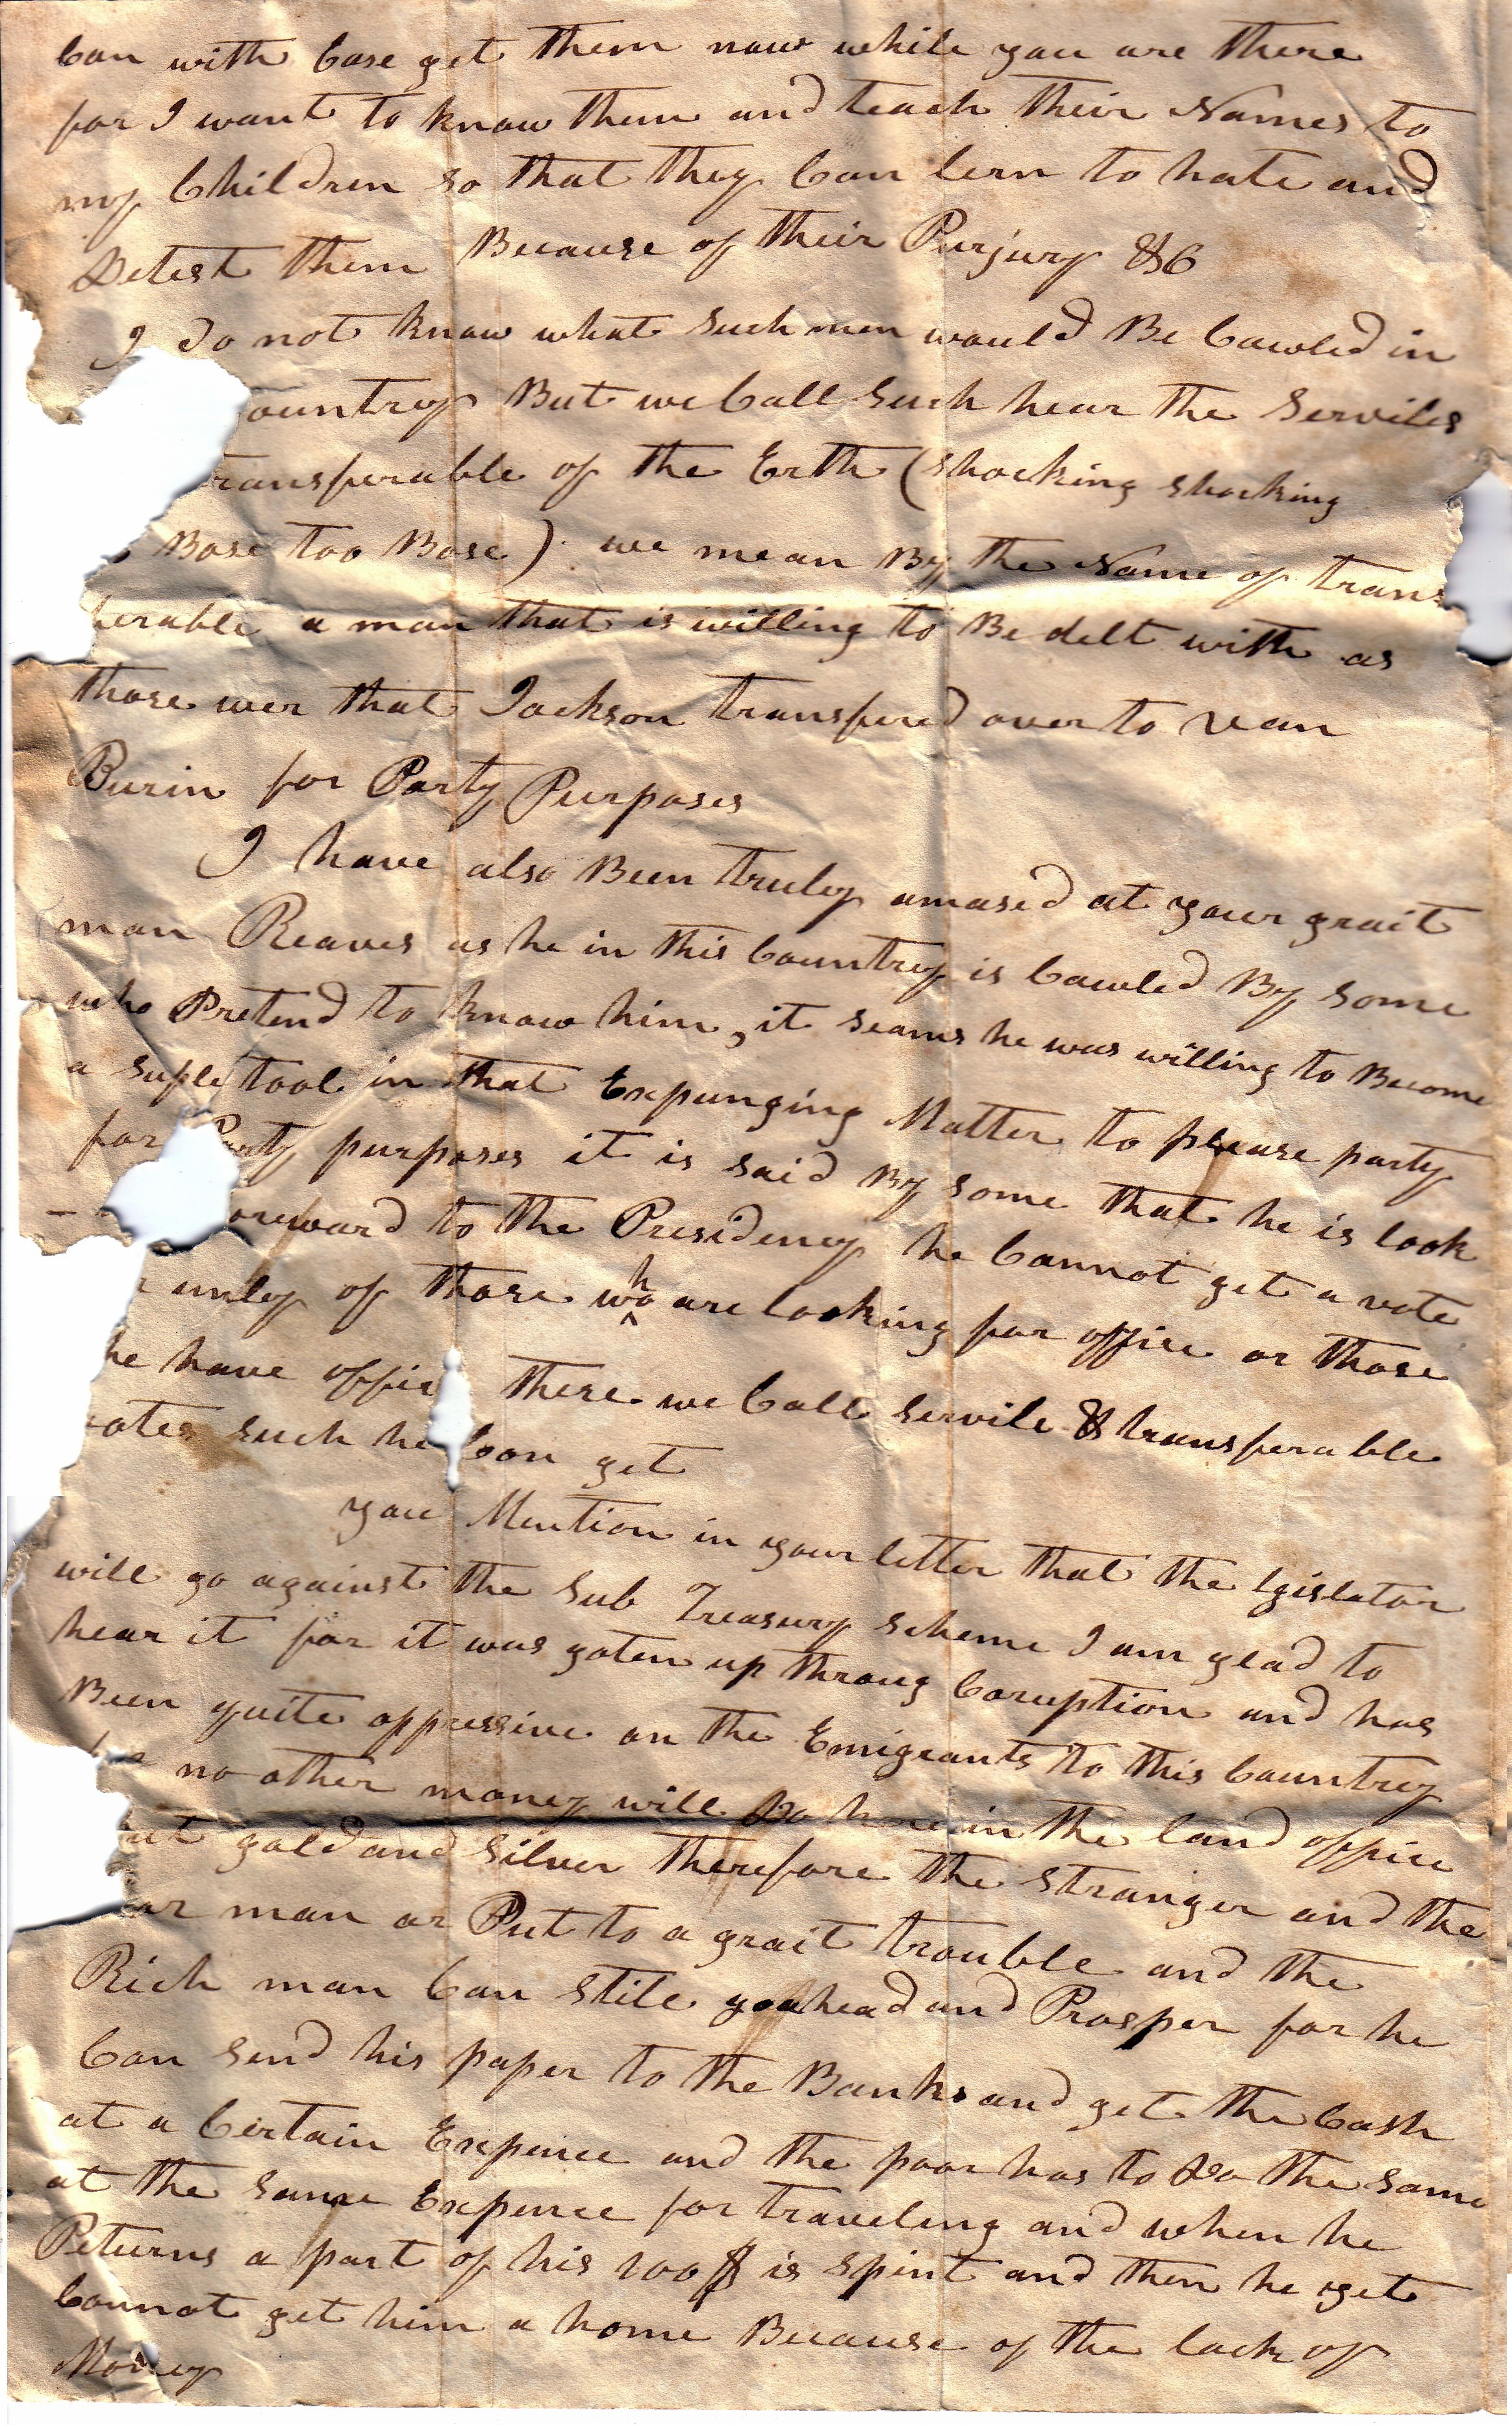 Can with Ease get them now while you are there
for I want to know them and teach their Names to
my Children so that they Can lern to hate and
Detest them Because of their Purjury &C
I do not know what such men would Be Cawled in
ountry But we Call such hear the Serviles
ransferable of the Erth (shocking shocking
Base too Base) we mean By the Name of trans
ferable a man that is willing to Be delt with as
those wer that Jackson transfered over to van
Burin for Party Purposes
I have also Been truley amased at your grait
man Reaves as he in this Country is Cawled By some
who Pretend to know him, it seams he was willing to Become
a suple tool in that Expunging Matter to please party
for Party purposes it is said By some that he is look
oreward to the Presidency he Cannot get a vote
unley of those who are looking for office or those
he have offic these we Call servile & transferable
votes such he Can get
you Mention in your letter that the lgislator
will go against the Sub Treasury scheme I am glad to
hear it for it was goten up throug Coruption and has
Been quite oppressive on the Emigrants to this Country
no other money will Do here in the land office
but gold and Silver therefore the Stranger and the
man ar Put to a grait trouble and the
Rich man Can stile goahead and Prosper for he
Can send his paper to the Banks and get the Cash
at a Certain Expence and the poor has to Do the same
at the same Expence for traveling and when he
Returns a part of his 100$ is spint and then he yet
Cannot get him a home Because of the lack of
Money